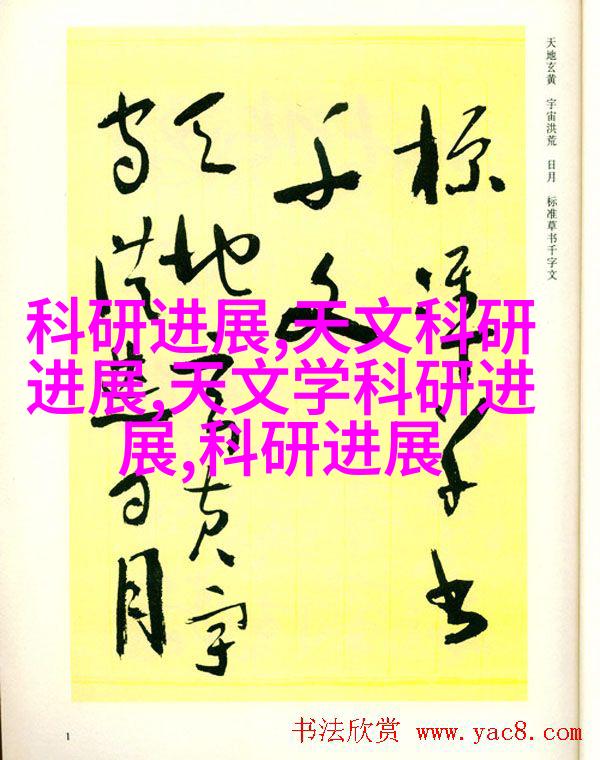 天地玄黄 宇宙洪荒 日月 标准草书千字文
标准草书
千文
天地玄黄宇
宙洪荒日月
科研进展,天文科研
进展,天文学科研进
展,科研进展
1
书法欣赏 www.yac8.com